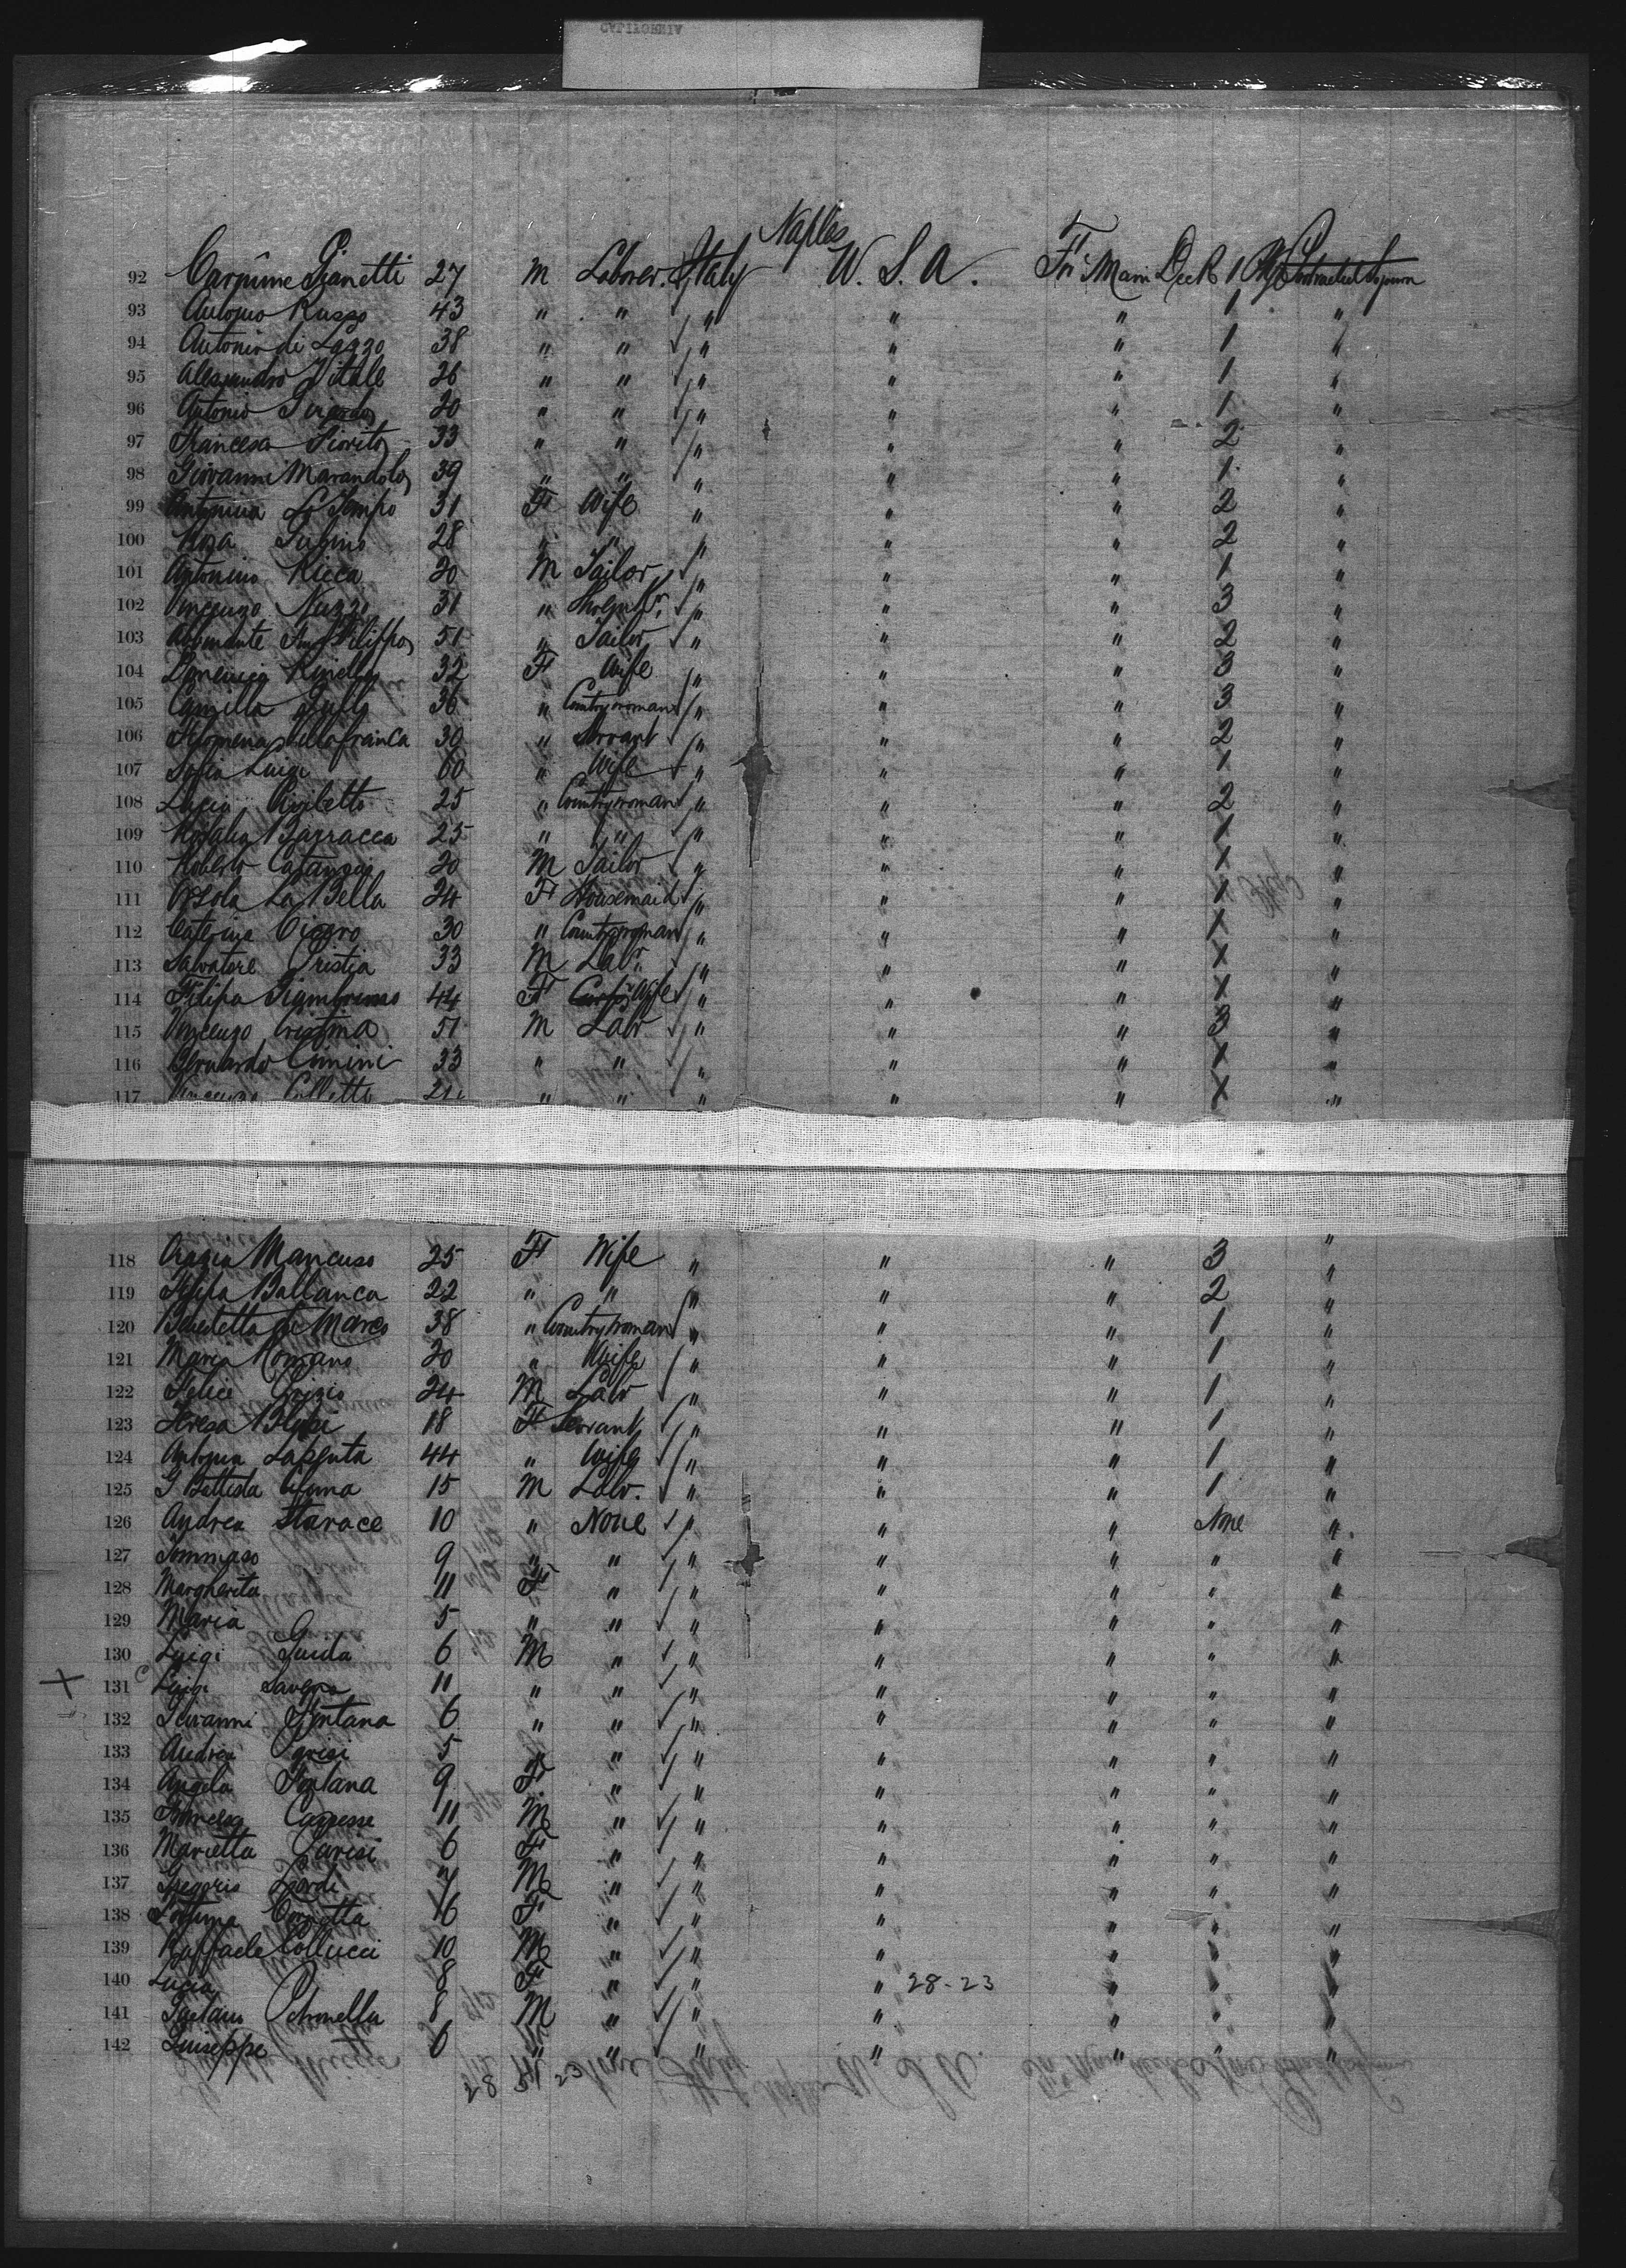 CALIFORNIA
Naples
92 Carmine Gianetti 27 M Laborer. Italy U. S. A. Fr: Main Deck 1 Protracted Sojourn
93 Antonio Russo 43 " " " " " 1 "
94 Antonio di Lazzo 38 " " " " " 1 "
95 Alessandro Vitale 26 " " " " " 1 "
96 Antonio Girardo 20 " " " " " 1 "
97 Francesco Fiorito 33 " " " " " 2 "
98 Giovanni Marandola 39 " " " " " 1 "
99 Antonina Lo Tempo 31 F Wife " " " 2 "
100 Rosa 28 " " " " " 2 "
101 Antonino Ricca 20 M Tailor " " " 1 "
102 Vincenzo Nuzzo 31 " Shoemkr. " " " 3 "
103 Filippo 51 " Tailor " " " 2 "
104 Domenica 32 F Wife " " " 3 "
105 Camilla 36 " Countrywoman " " " 3 "
106 Filomena Villafranca 30 " Servant " " " 2 "
107 Sofia Luigi 60 " Wife " " " 1 "
108 Lucia 25 " Countrywoman " " " 2 "
109 Rosalia Barracca 25 " " " " " 1 "
110 Roberto Catanzai 20 M Tailor " " " 1 "
111 Orsola La Bella 24 F Housemaid " " " 1 "
112 Caterina Cicero 30 " Countrywoman " " " 1 "
113 Salvatore Pristia 33 M Labr. " " " 1 "
114 Filipa Giambruno 44 F Wife " " " 1 "
115 Vincenzo Cristina 51 M Labr " " " 3 "
116 Bernardo Cimini 33 " " " " " 1 "
117 Vincenzo Colletti " " " " " 1 "
118 Grazia Mancuso 25 F Wife " " " 3 "
119 Ballanca 22 " " " " " 2 "
120 Benedetta di Marco 38 " Countrywoman " " " 1 "
121 Maria Romano 20 " Wife " " " 1 "
122 Felice Grizio 24 M Labr " " " 1 "
123 Teresa 18 F Servant " " " 1 "
124 Antonia Lapenta 44 " Wife " " " 1 "
125 G Battista 15 M Labr. " " " 1 "
126 Andrea Starace 10 " None " " " None "
127 Tommaso 9 " " " " " " "
128 Margherita 11 F " " " " " "
129 Maria 5 " " " " " " "
130 Luigi Guida 6 M " " " " " "
X 131 Luigi 11 " " " " " " "
132 Giovanni Fontana 6 " " " " " " "
133 Andrea Parisi 5 " " " " " " "
134 Angela Fontana 9 F " " " " " "
135 Francesco 11 M " " " " " "
136 Marietta Parisi 6 F " " " " " "
137 Gregorio 7 M " " " " " "
138 Fortuna Cornetta 6 F " " " " " "
139 Raffaele Collucci 10 M " " " " " "
140 Lucia 8 F " " " 28-23 " " "
141 Gaetano Petronella 8 M " " " " " "
142 Giuseppe 6 " " " " " " "
28 31 23